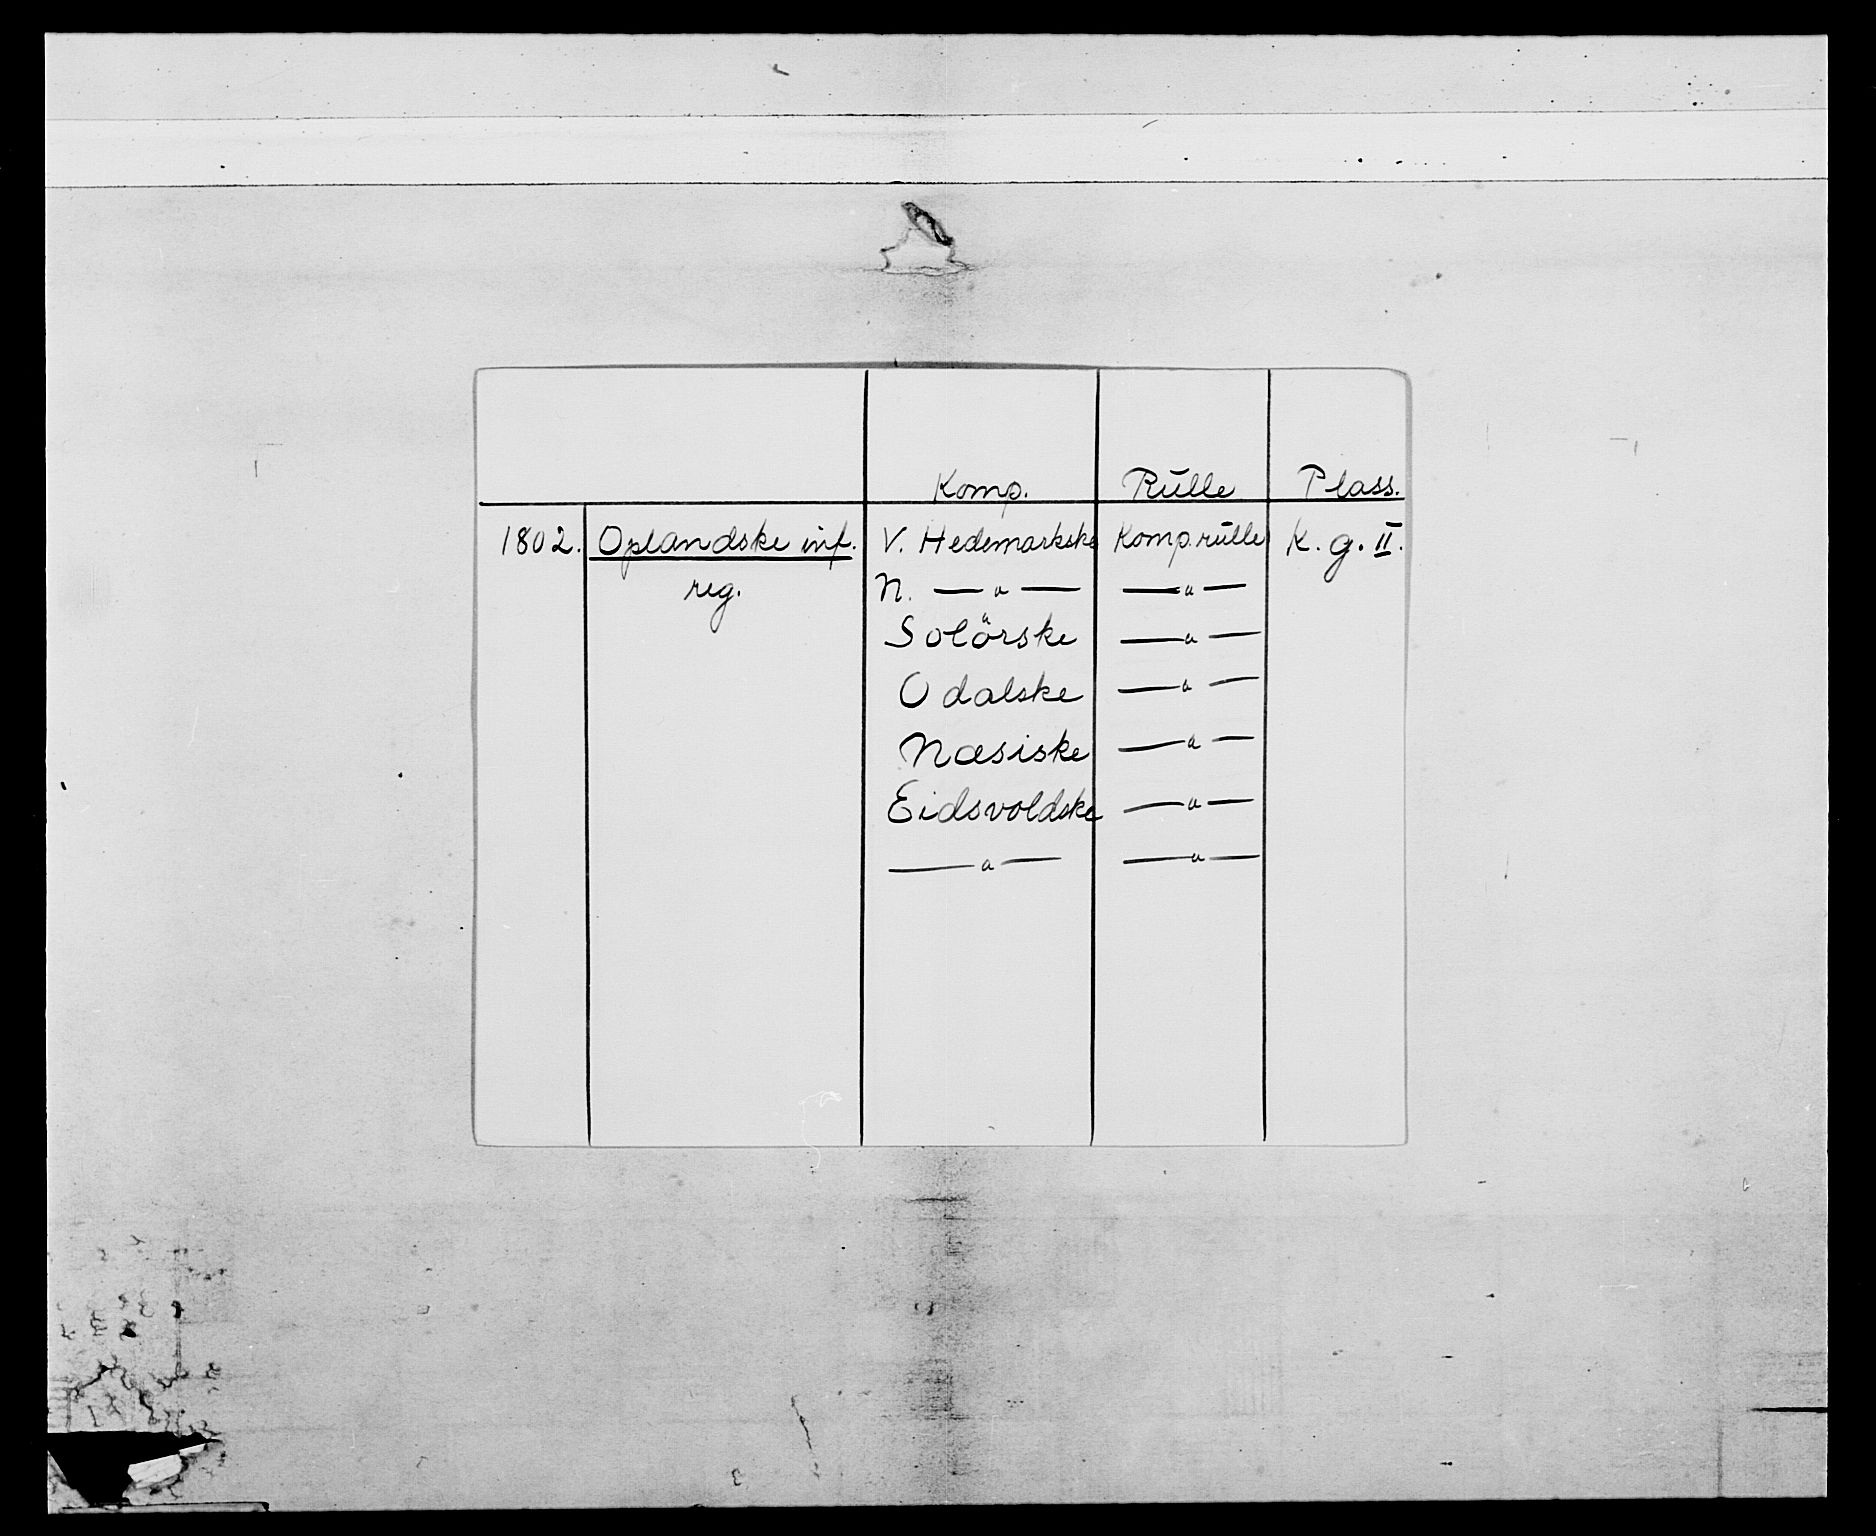 Komp. Rŭlle Plass.
1802. Oplandske inf. V. Hedemarkske Komp.rŭlle K. g. II.
reg. N. — " — — " —
Solörske — " —
Odalske — " —
Næsiske — " —
Eidsvoldske — " —
— " — — " —